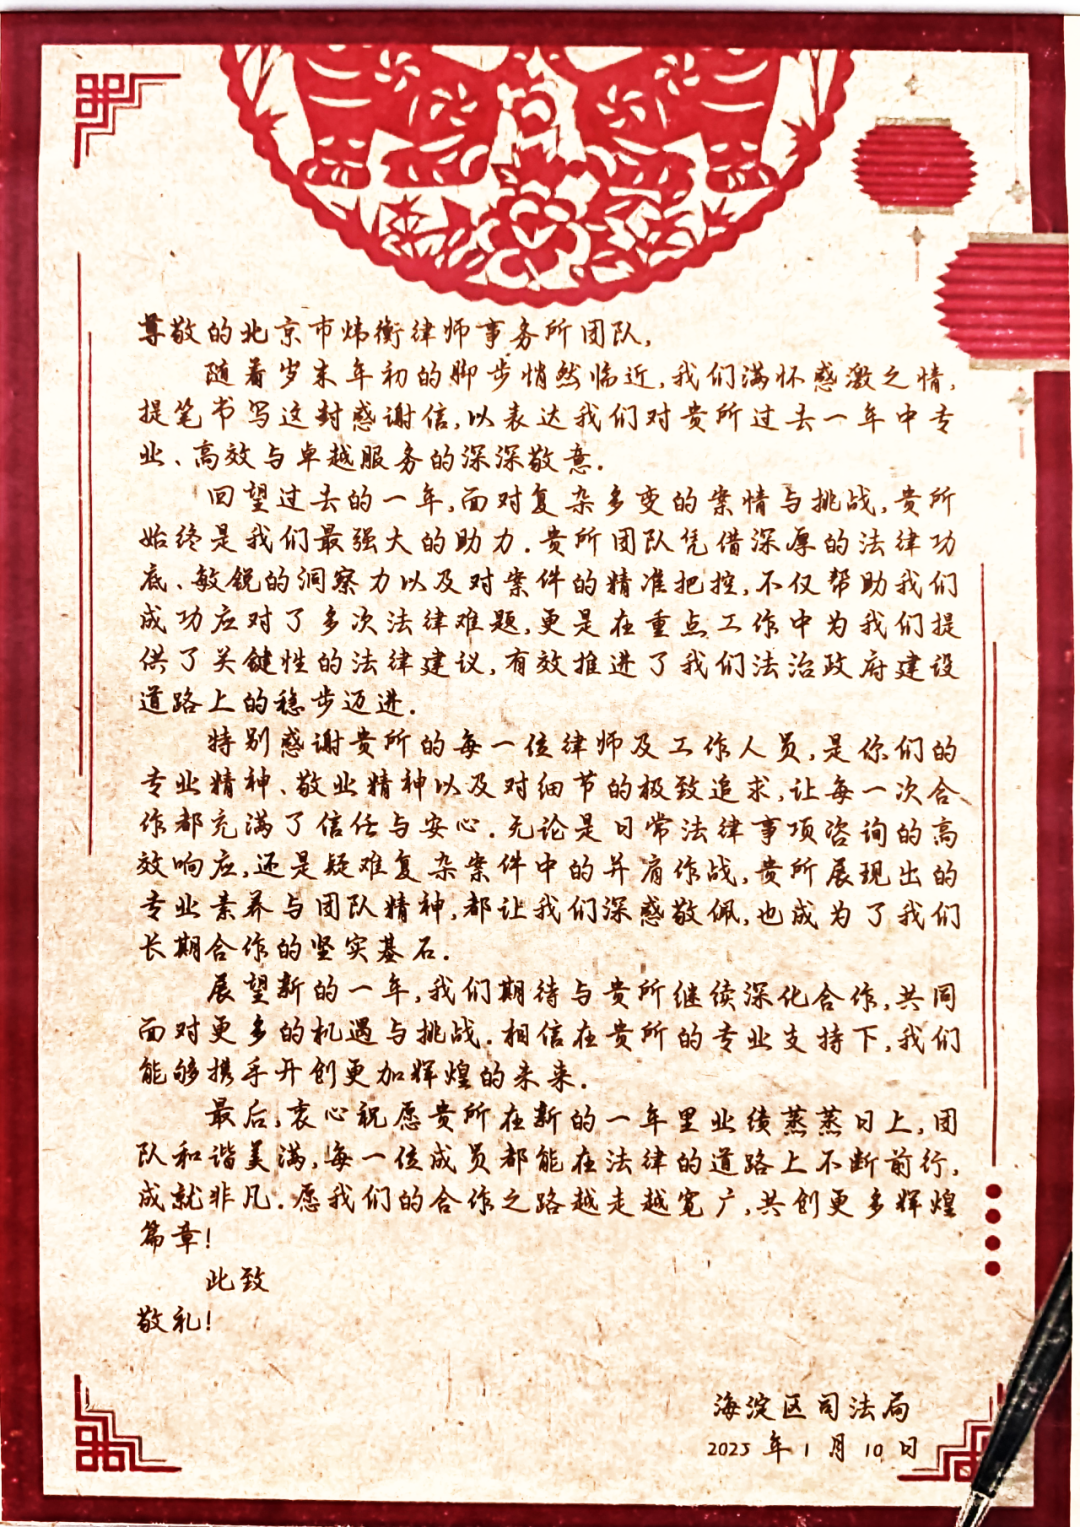 尊敬的北京市炜衡律师事务所团队,
随着岁末年初的脚步悄然临近,我们满怀感激之情,
提笔书写这封感谢信,以表达我们对贵所过去一年中专
业、高效与卓越服务的深深敬意.
回望过去的一年,面对复杂多变的案情与挑战,贵所
始终是我们最强大的助力.贵所团队凭借深厚的法律功
底、敏锐的洞察力以及对案件的精准把控,不仅帮助我们
成功应对了多次法律难题,更是在重点工作中为我们提
供了关键性的法律建议,有效推进了我们法治政府建设
道路上的稳步迈进.
特别感谢贵所的每一位律师及工作人员,是你们的
专业精神、敬业精神以及对细节的极致追求,让每一次合
作都充满了信任与安心.无论是日常法律事项咨询的高
效响应,还是疑难复杂案件中的并肩作战,贵所展现出的
专业素养与团队精神,都让我们深感敬佩,也成为了我们
长期合作的坚实基石.
展望新的一年,我们期待与贵所继续深化合作,共同
面对更多的机遇与挑战.相信在贵所的专业支持下,我们
能够携手开创更加辉煌的未来.
最后,衷心祝愿贵所在新的一年里业绩蒸蒸日上,团
队和谐美满,每一位成员都能在法律的道路上不断前行,
成就非凡.愿我们的合作之路越走越宽广,共创更多辉煌
篇章!
此致
敬礼!
海淀区司法局
2025年1月10日